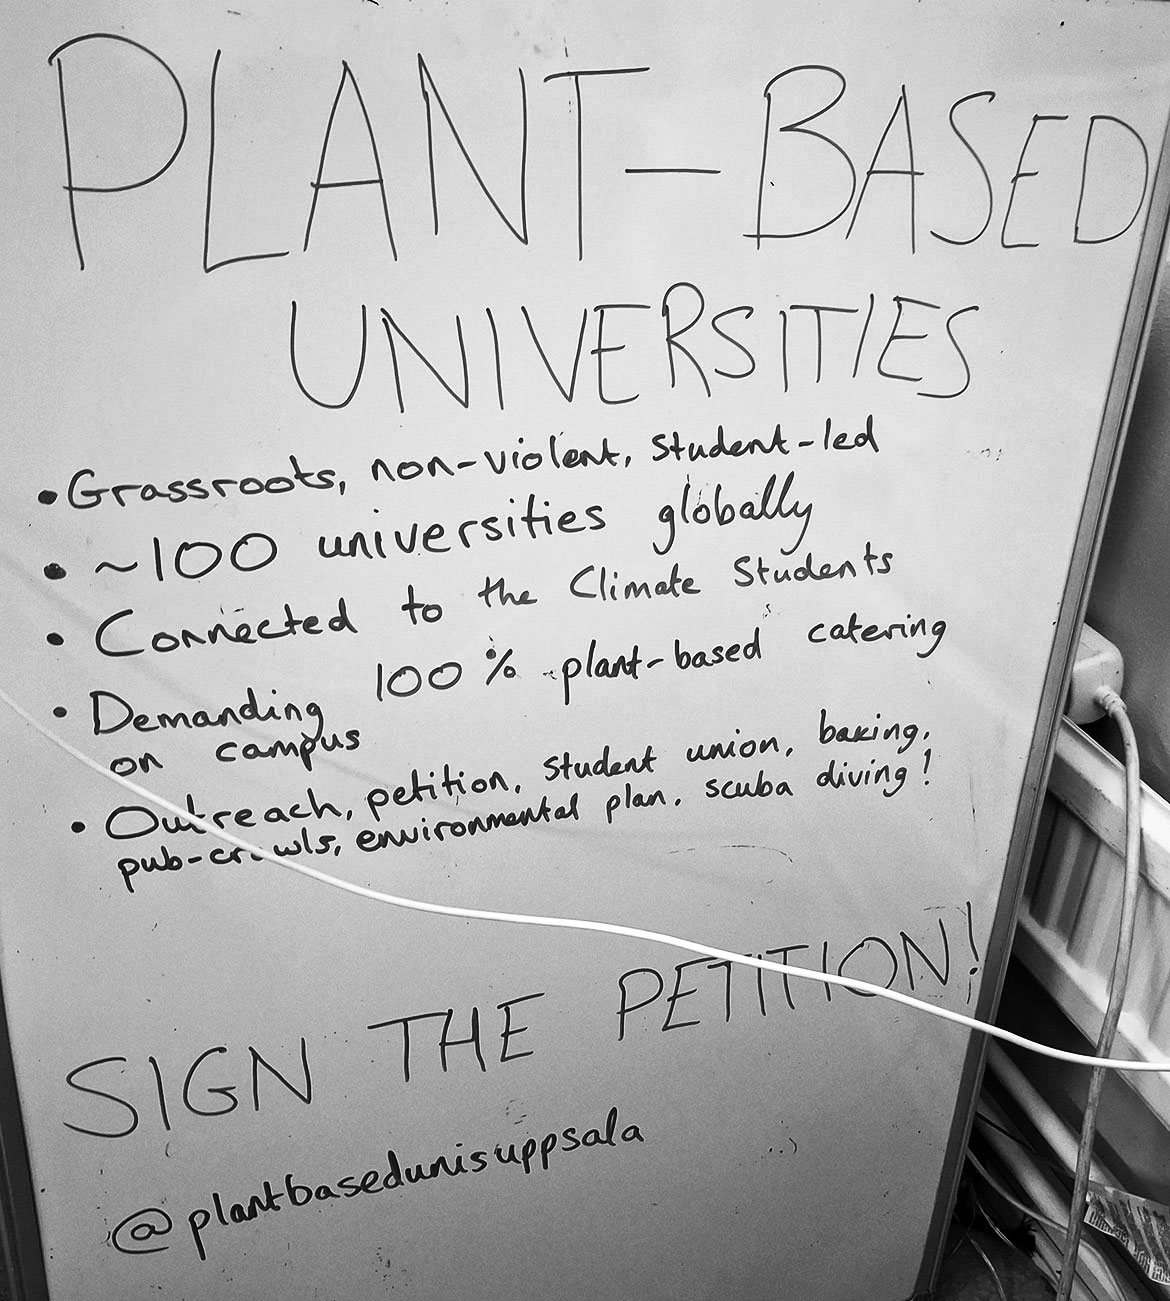 PLANT-BASED
UNIVERSITIES
• Grassroots, non-violent, student-led
• ~100 universities globally
• Connected to the Climate Students
• Demanding 100% plant-based catering
on campus
• Outreach, petition, student union, baking,
pub-crawls, environmental plan, scuba diving!
SIGN THE PETITION!
@plantbasedunisuppsala